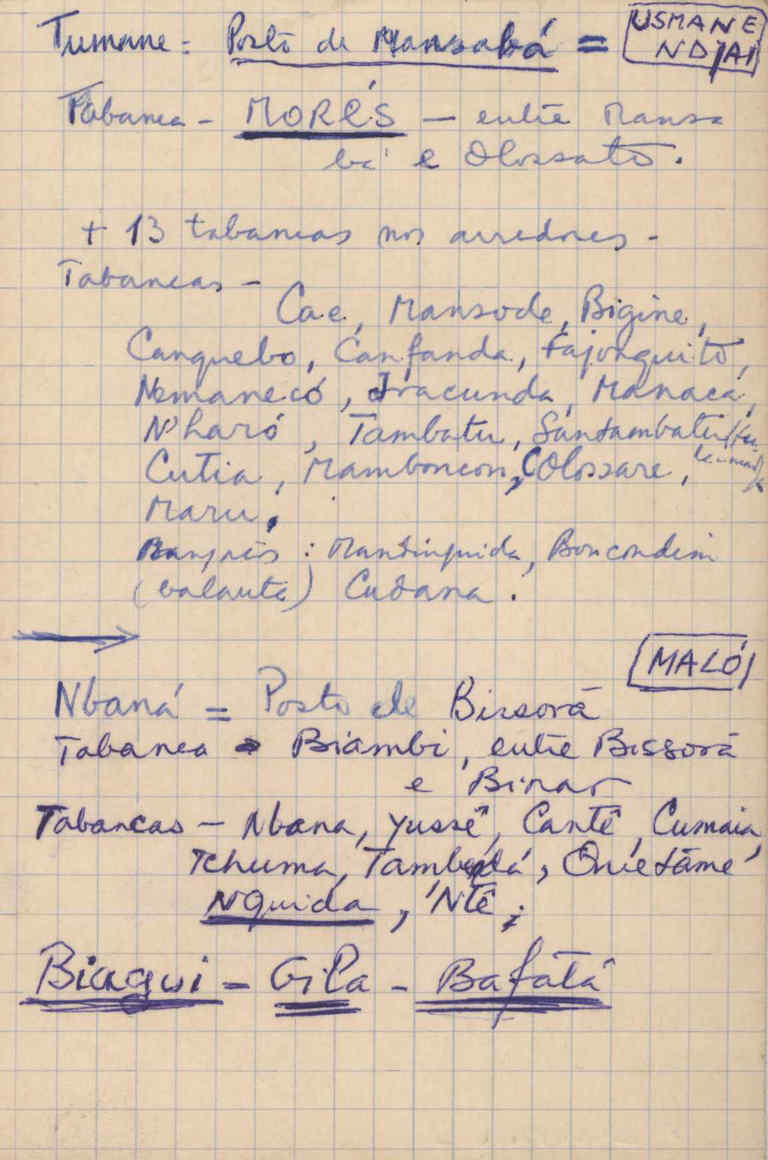 Tumane = Posto de Mansabá = USMANE NDJAI
Tabanca - MORÉS - entre Mansa
bá e Olossato.
+ 13 tabancas nos arredores -
Tabancas -
Cae, Mansode, Bigine,
Canquebo, Canfanda, Fajonquito,
Nemanecó, Iracunda, Manaca,
N'haró, Tambatu, Santambatu
Cutia, Mamboncon, Colossare,
Maru.
: Mandinguida, Boncondim
(balanta) Cubana.
MALÓ
Nbaná = Posto de Bissorã
Tabanca Biambi, entre Bissorã
e Binar
Tabancas - Nbana, Yussê, Cantê, Cumaia,
Tchuma, Quietãme
NQuida, 'Ntê;
Biagui - Gila - Bafatá